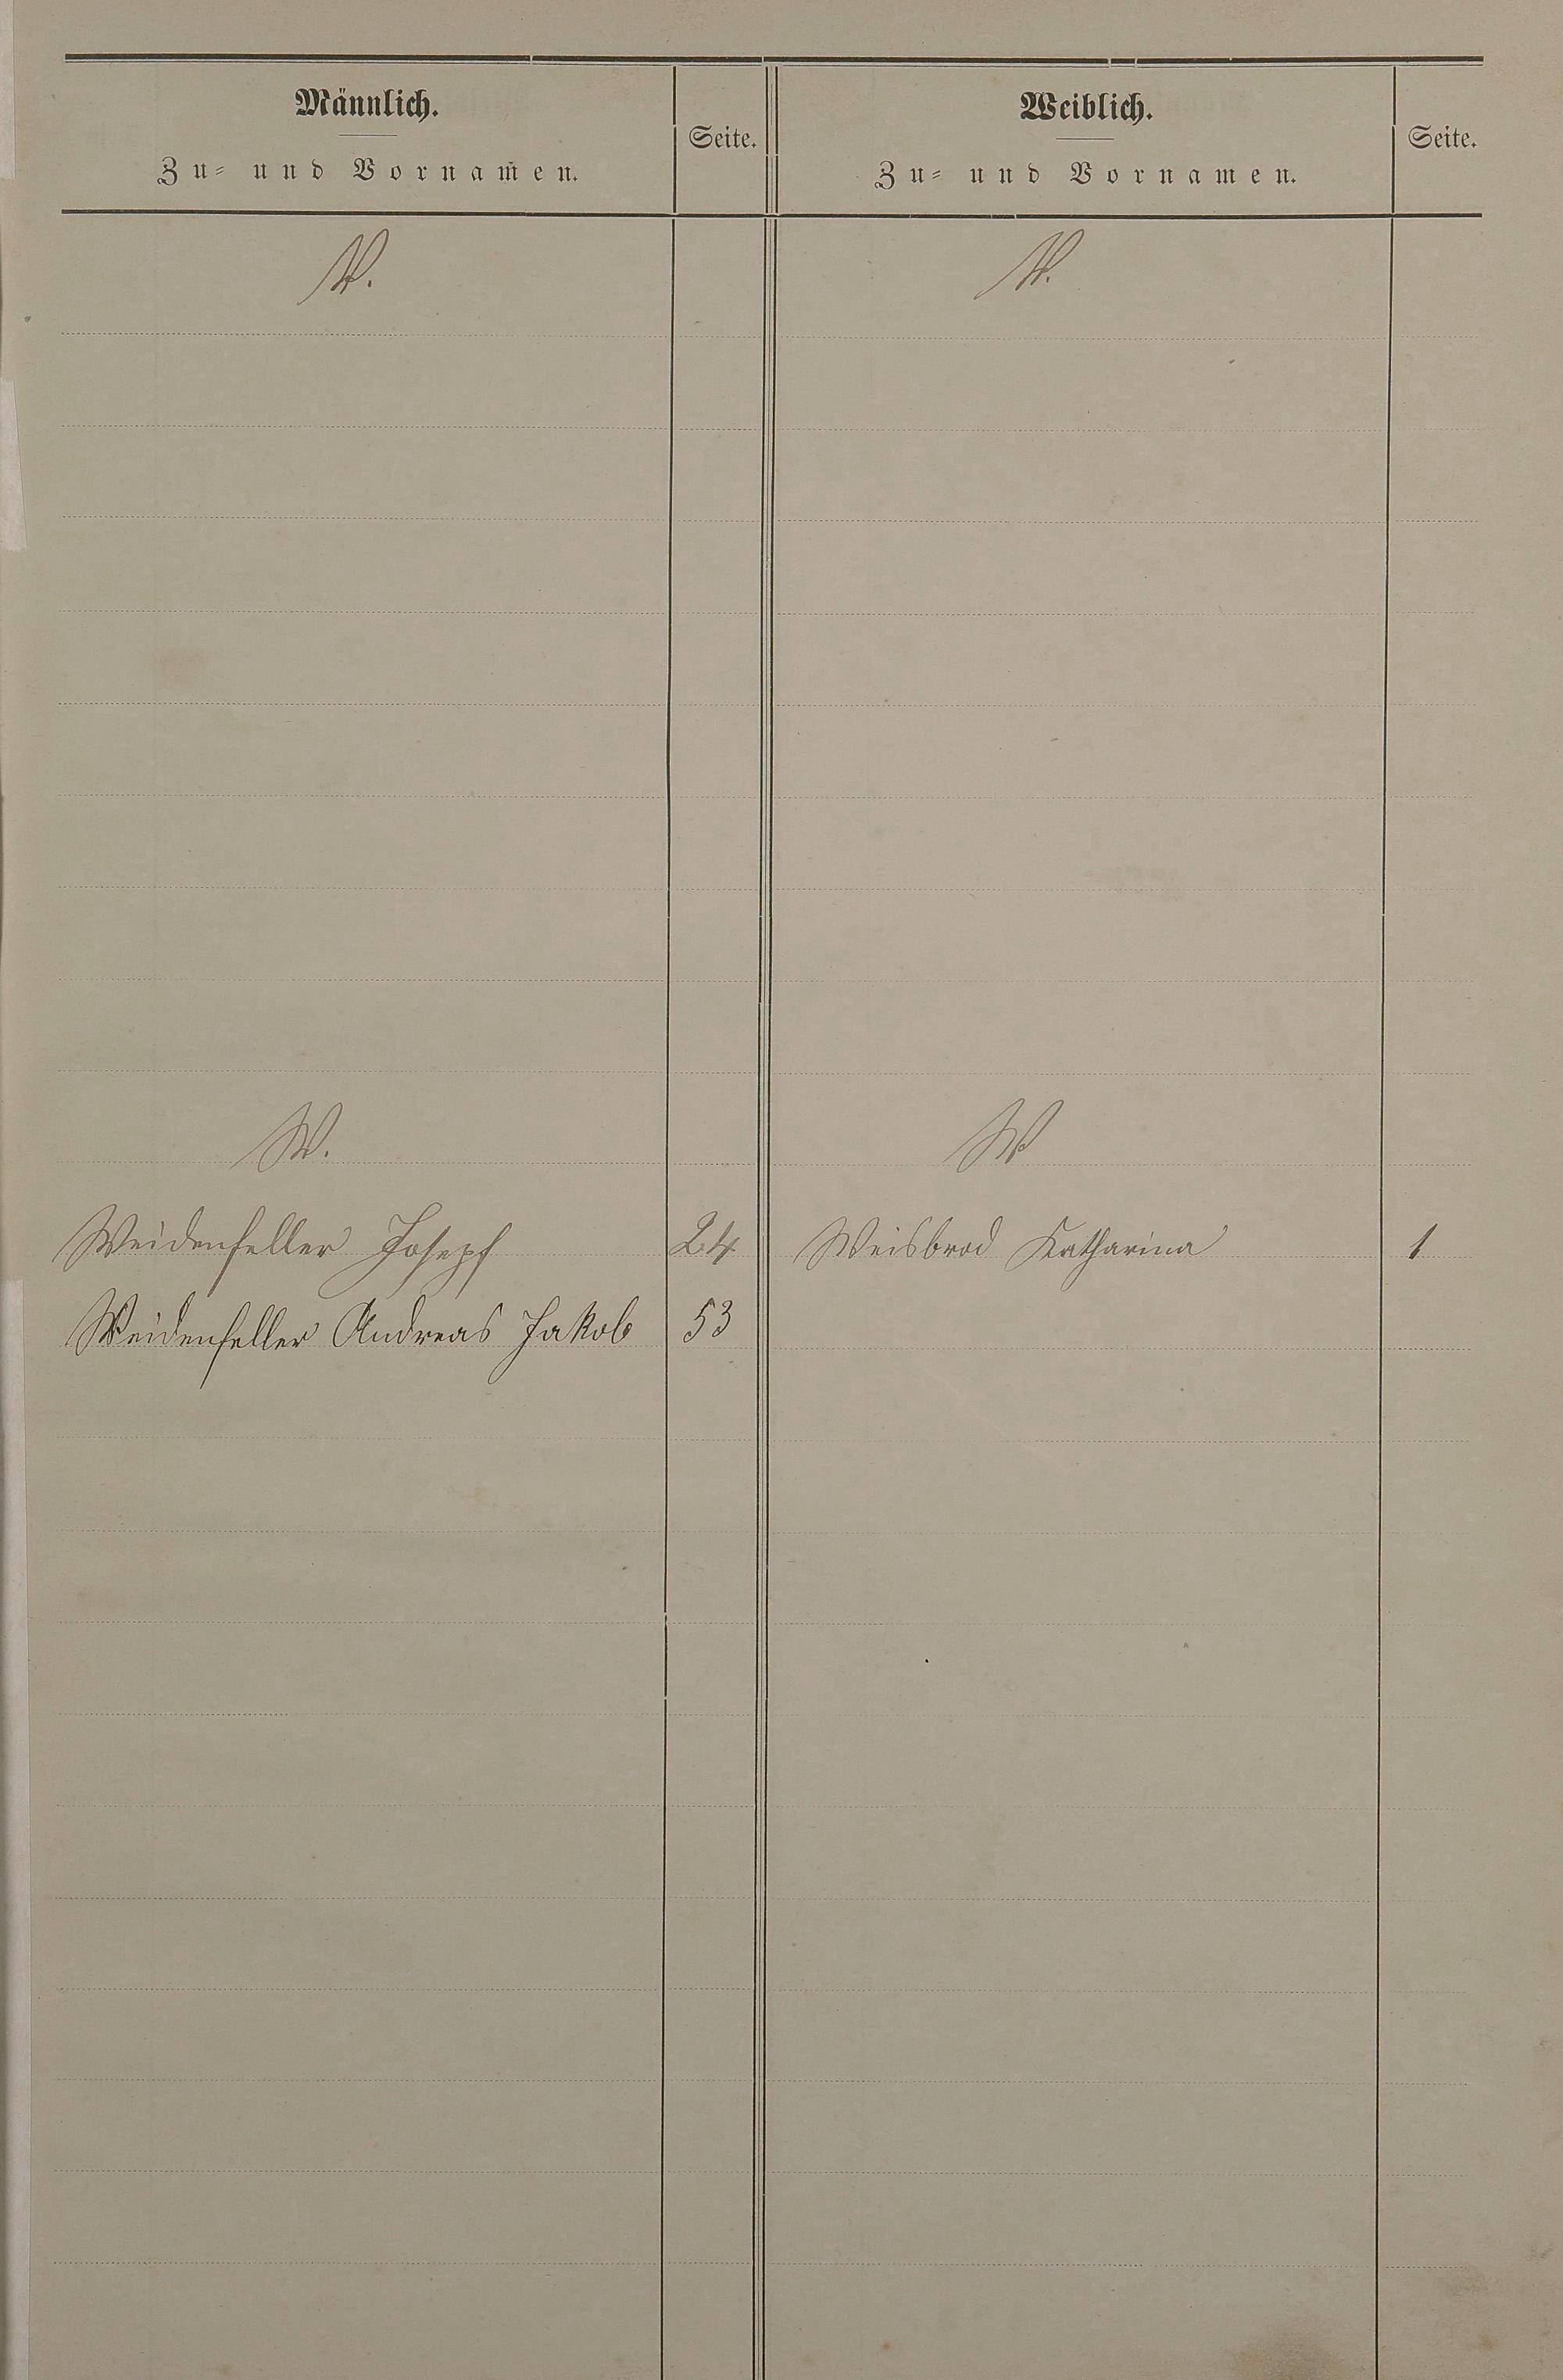 Männlich.
Zu- und Vornamen.
Seite.
Weiblich.
Zu- und Vornamen.
Seite.
V.
V.
W.
W
Weidenfeller Joseph 24
Weisbrod Katharina 1
Weidenfeller Andreas Jakob 53